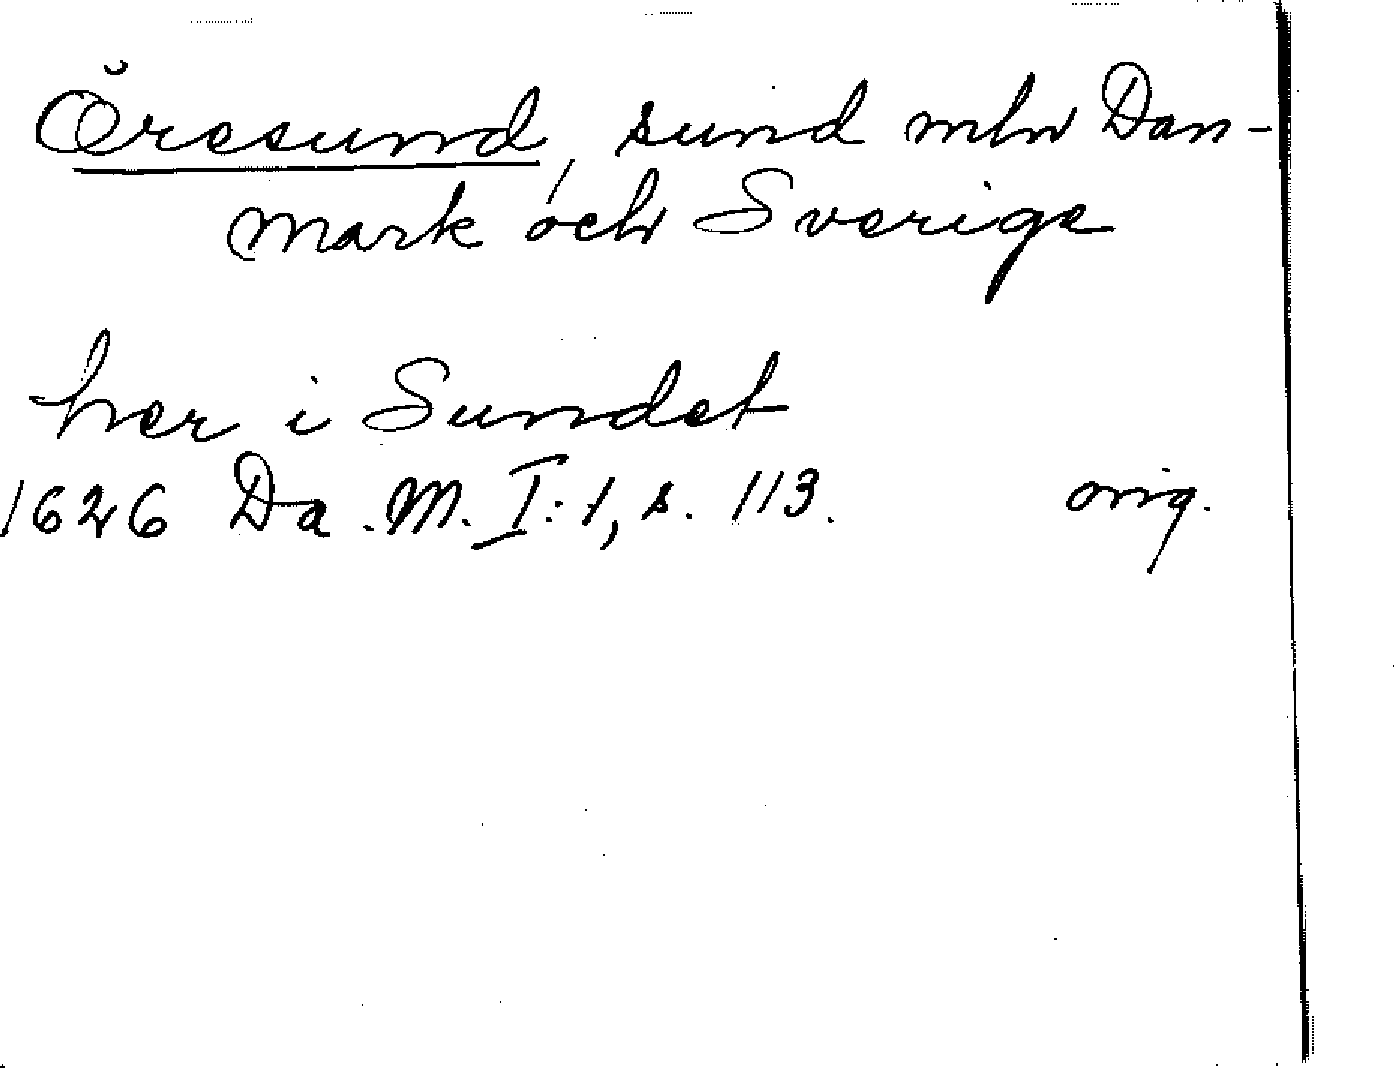 Öresund, sund mln Dan-
mark och Sverige
her i Sundet
1626 Da. M. I:1, s. 113. orig.